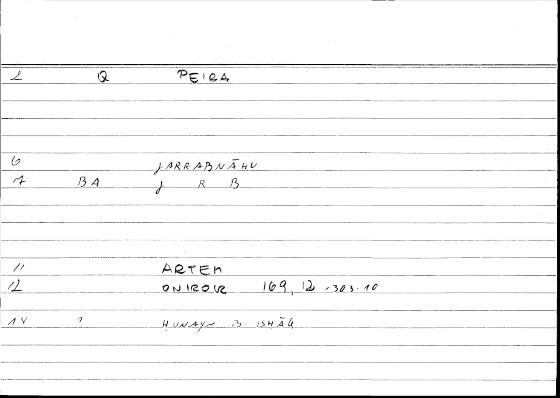 1 Q PEIRA
6 JARRABNĀHU
7 BA J R B
11 ARTEM
12 ONIROK 169, 12 - 303.10
14 ? HUNAYN B. ISHĀQ